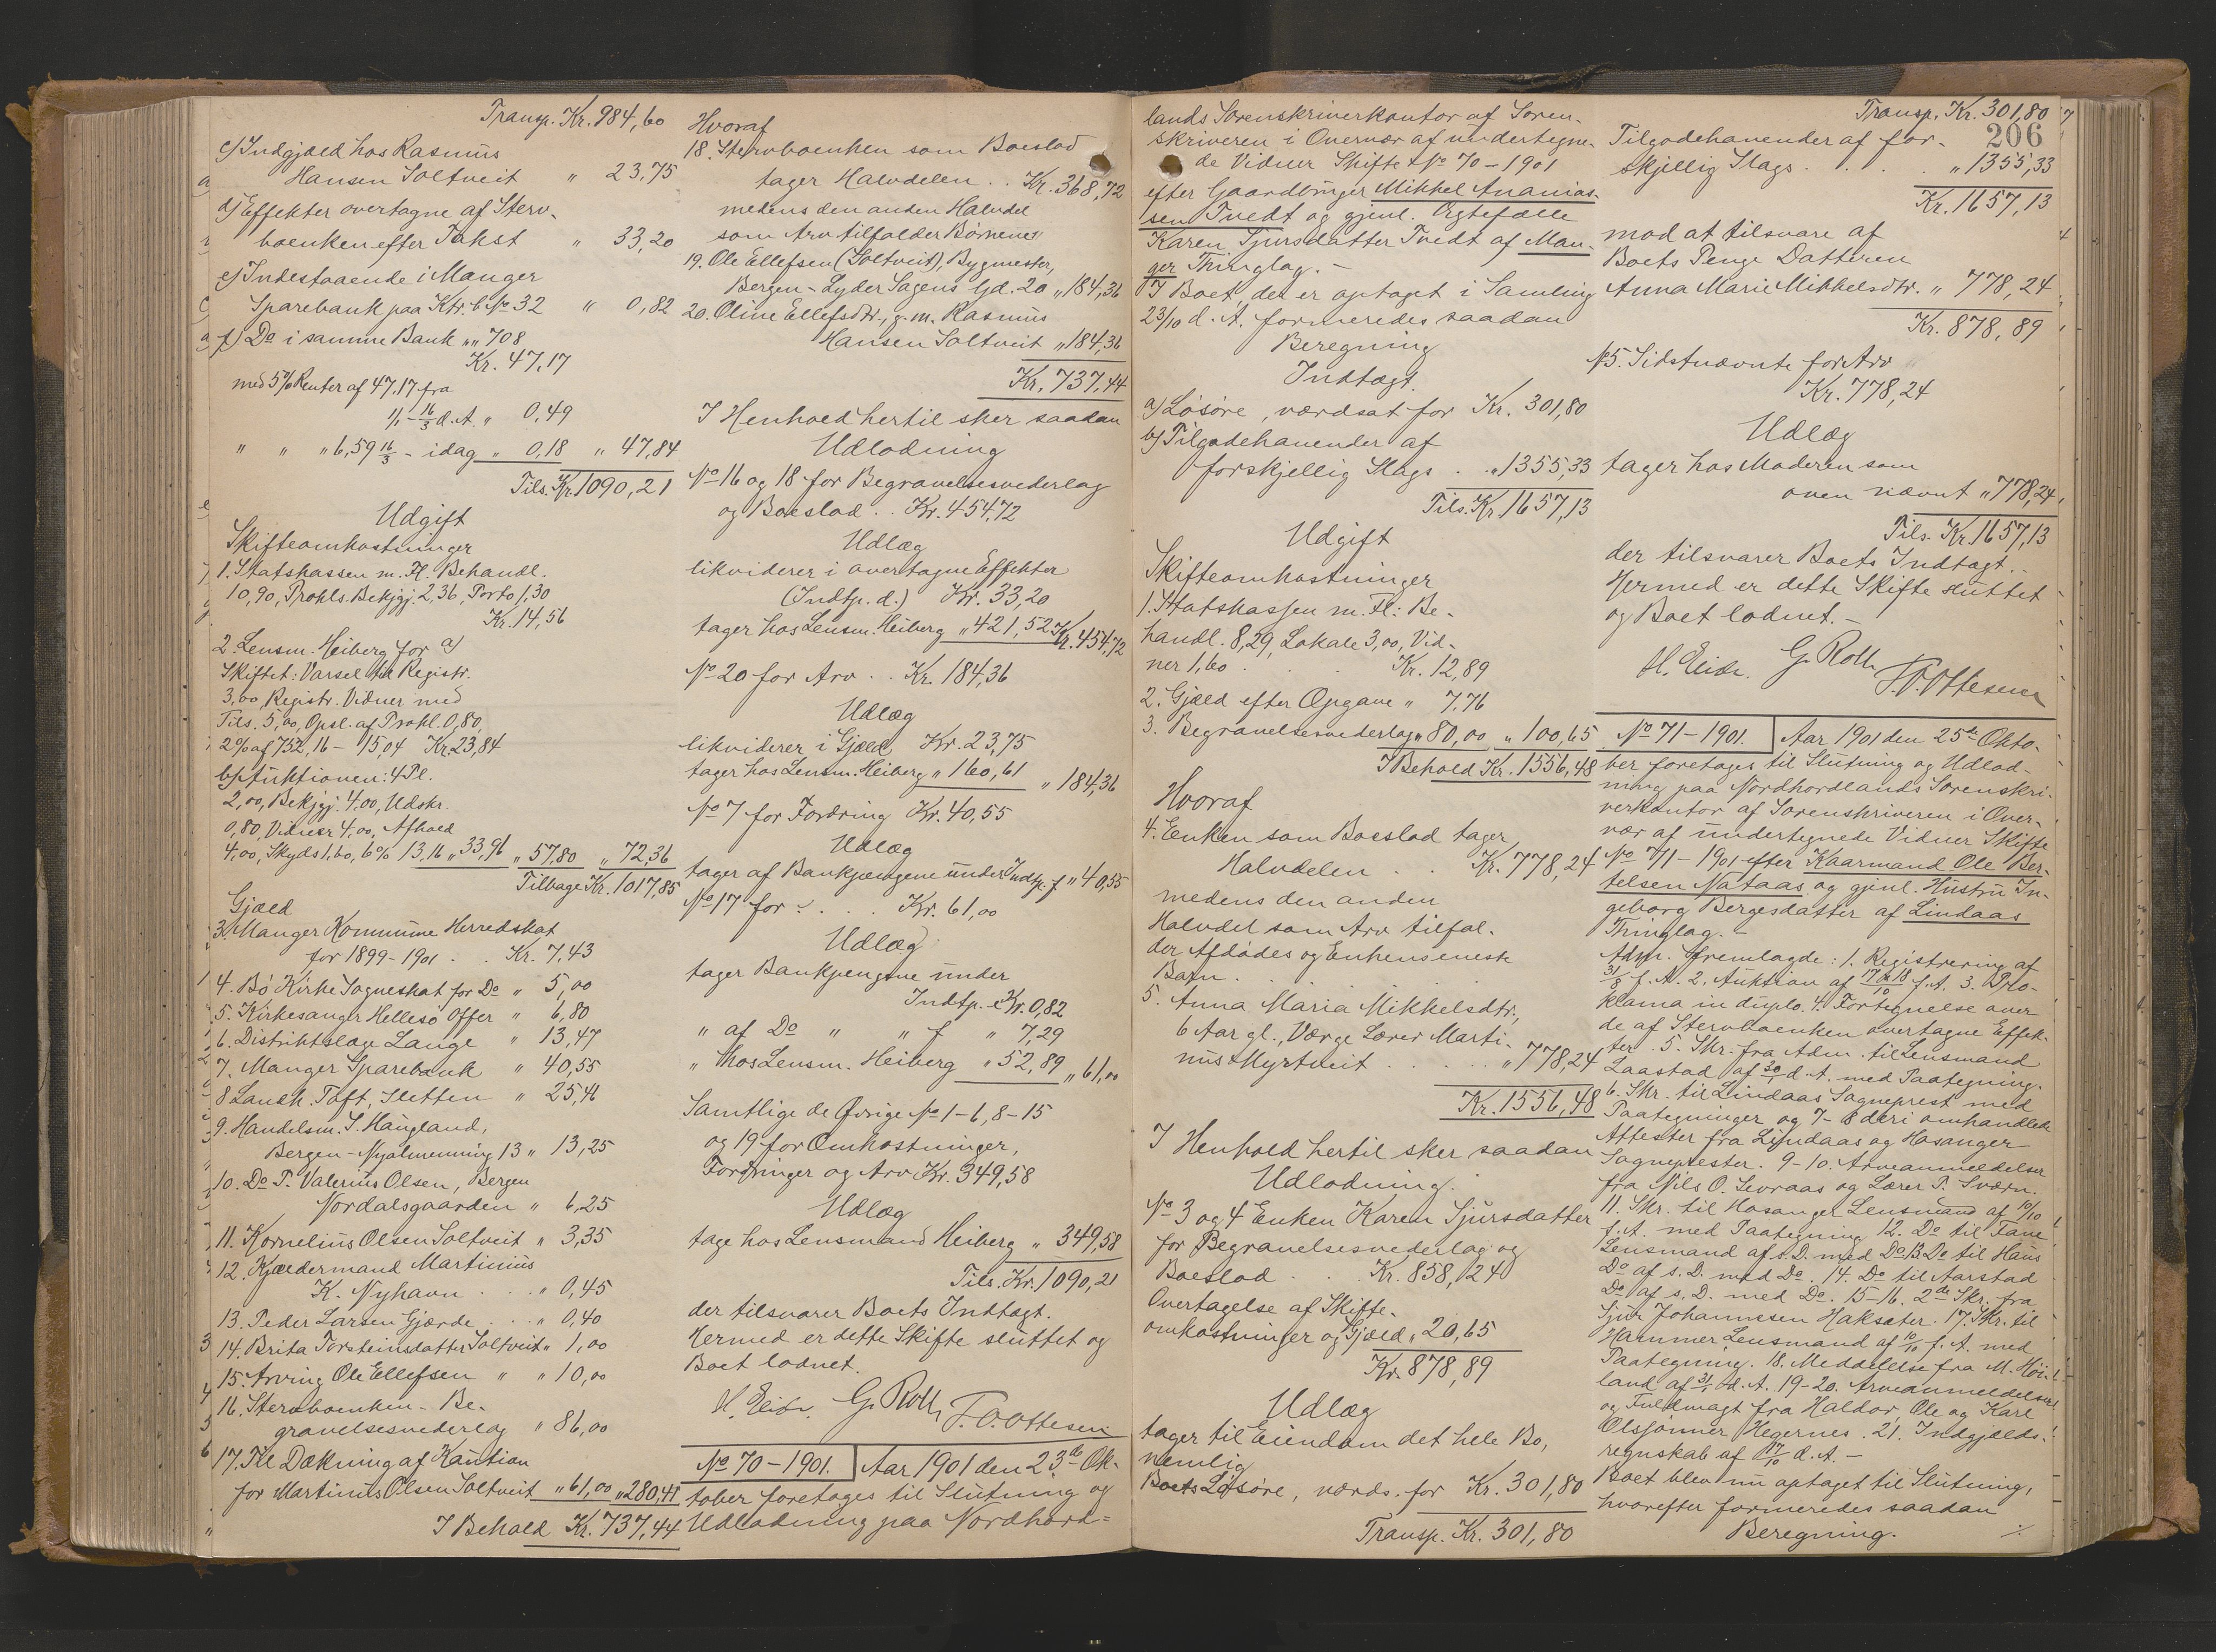 Transp. Kr. 984,60
c) Indgjæld hos Rasmus
Hansen Soltveit " 23,75
d) Effekter overtagne af Sterv-
boenken efter Takst " 33,20
e) Indestaaende i Manger
Sparebank paa Ktr. b. No 32 " 0,82
f) Do i samme Bank " " 708
Kr. 47,17
med 5% Renter af 47,17 fra
1/1 - 16/3 d. A. " 0,49
" " " 6,59 16/3 - idag " 0,18 " 47,84
Tils. Kr. 1090,21
Udgift
Skifteomkostninger
1. Statskassen m. Fl. Behandl.
10,90, Prokls. Bekjgj. 2,36, Porto 1,30
Kr. 14,56
2. Lensm. Heiberg for a)
Skiftet: Varsel til Registr.
3,00, Registr. Vidner med
Tils. 5,00, Opsl. af Prokl. 0,80,
2% af 752,16 - 15,04 Kr. 23,84
b) Auktionen: 4 Pl.
2,00, Bekjgj. 4,00, Udskr.
0,80, Vidner 4,00, Afhold
4,00, Skyds 1,60, 6% 13,16 " 33,96 " 57,80 " 72,36
Tilbage Kr. 1017,85
Gjæld
3. Manger Kommune Herredskat
for 1899-1901 . . Kr. 7,43
4. Bø Kirke Sogneskat for Do " 5,00
5. Kirkesanger Hellesø Offer " 6,80
6. Distriktslæge Lange " 13,47
7. Manger Sparebank " 40,55
8. Landh. Toft, Sletten " 25,46
9. Handelsm. S. Haugland,
Bergen - Nyalmenning 13 " 13,25
10. Do P. Valerius Olsen, Bergen
Nordalsgaarden " 6,25
11. Kornelius Olsen Soltveit " 3,35
12. Kjældermand Martinius
K. Nyhavn . . . " 0,45
13. Peder Larsen Gjærde . . " 0,40
14. Brita Torsteinsdatter Soltveit " 1,00
15. Arving Ole Ellefsen " " 10,00
16. Stervboenken - Be-
gravelsesvederlag " 86,00
17. Til Dækning af Kaution
for Martinus Olsen Soltveit " 61,00 " 280,41
I Behold Kr. 737,44
Hvoraf
18. Stervboenken som Boeslod
tager Halvdelen . . Kr. 368,72
medens den anden Halvdel
som Arv tilfalder Børnene:
19. Ole Ellefsen (Soltveit), Bygmester,
Bergen - Lyder Sagens Gd. 20 " 184,36
20. Oline Ellefsdtr., g. m. Rasmus
Hansen Soltveit " 184,36
Kr. 737,44
I Henhold hertil sker saadan
Udlodning
No 16 og 18 for Begravelsesvederlag
og Boeslod . . Kr. 454,72
Udlæg
likviderer i overtagne Effekter
(Indtp. d.) Kr. 33,20
tager hos Lensm. Heiberg " 421,52 Kr. 454,72
No 20 for Arv . . Kr. 184,36
Udlæg
likviderer i Gjæld Kr. 23,75
tager hos Lensm. Heiberg " 160,61 " 184,36
No 7 for Fordring Kr. 40,55
Udlæg
tager af Bankpengene under Indtp. f " 40,55
No 17 for : . . . Kr. 61,00
Udlæg
tager Bankpengene under
Indtp. e Kr. 0,82
" af Do " " f " 7,29
" hos Lensm. Heiberg " 52,89 " 61,00
Samtlige de Øvrige No 1-6, 8-15
og 19 for Omkostninger,
Fordringer og Arv Kr. 349,58
Udlæg
tage hos Lensmand Heiberg " 349,58
Tils. Kr. 1090,21
der tilsvarer Boets Indtægt.
Hermed er dette Skifte sluttet og
Boet lodnet.
G. Roth F. O. Ottesen
No 70-1901. Aar 1901 den 23de Ok-
tober foretages til Slutning og
Udlodning paa Nordhord-
lands Sorenskriverkontor af Soren-
skriveren i Overvær af undertegne-
de Vidner Skifte No 70-1901
efter Gaardbruger Mikkel Ananias-
sen Tvedt og gjenl. Ægtefælle
Karen Sjursdatter Tvedt af Man-
ger Thinglag. -
I Boet, der er optaget i Samling
23/10 d. A. formeredes saadan
Beregning
Indtægt.
a) Løsøre, værdsat for Kr. 301,80
b) Tilgodehavender af
forskjellig Slags . . " 1355,33
Tils. Kr. 1657,13
Udgift
Skifteomkostninger
1. Statskassen m. Fl.: Be-
handl. 8,29, Lokale 3,00, Vid-
ner 1,60 . . Kr. 12,89
2. Gjæld efter Opgave " 7,76
3. Begravelsesvederlag " 80,00 " 100,65
I Behold Kr. 1556,48
Hvoraf
4. Enken som Boeslod tager
Halvdelen . . Kr. 778,24
medens den anden
Halvdel som Arv tilfal-
der Afdødes og Enkens eneste
Barn .
5. Anna Maria Mikkelsdtr.,
6 Aar gl., Værge Lærer Marti-
nus Myrtveit . . . . " 778,24
Kr. 1556,48
I Henhold hertil sker saadan
Udlodning.
No 3 og 4 Enken Karen Sjursdatter
for Begravelsesvederlag og
Boeslod . . Kr. 858,24
Overtagelse af Skifte-
omkostninger og Gjæld " 20,65
Kr. 878,89
Udlæg
tager til Eiendom det hele Bo,
nemlig
Boets Løsøre, værds. for Kr. 301,80
Transp. Kr. 301,80
Transp. Kr. 301,80
206
Tilgodehavender af for-
skjellig Slags . . . . " 1355,33
Kr. 1657,13
mod at tilsvare af
Boets Penge Datteren
Anna Marie Mikkelsdtr. " 778,24
Kr. 878,89
No 5. Sidstnævnte for Arv
Kr. 778,24
Udlæg
tager hos Moderen som
oven nævnt " 778,24
Tils. Kr. 1657,13
der tilsvarer Boets Indtægt. -
Hermed er dette Skifte sluttet
og Boet lodnet. -
G. Roth F. O. Ottesen
No 71-1901. Aar 1901 den 25de Okto-
ber foretages til Slutning og Udlod-
ning paa Nordhordlands Sorenskri-
verkontor af Sorenskriveren i Over-
vær af undertegnede Vidner Skifte
No 71-1901 efter Kaarmand Ole Ber-
telsen Nataas og gjenl. Hustru In-
geborg Bergesdatter af Lindaas
Thinglag. -
Adm. fremlagde: 1. Registrering af
31/8 f. A. 2. Auktion af 17 & 18/10 f. A. 3. Pro-
klama in duplo. 4. Fortegnelse over
de af Stervboenken overtagne Effek-
ter. 5. Skr. fra Adm. til Lensmand
Laastad af 30/1 d. A. med Paategning.
6. Skr. til Lindaas Sogneprest med
Paategninger og 7-8 deri omhandlede
Attester fra Lindaas og Hosanger
Sogneprester. 9-10. Arveanmeldelser
fra Nils O. Sevraas og Lærer P. Sværn.
11. Skr. til Hosanger Lensmand af 10/10
f. A. med Paategning 12. Do til Fane
Lensmand af s. D. med Do 13. Do til Haus
Do af s. D. med Do. 14. Do til Aarstad
Do af s. D. med Do. 15-16. 2de Skr. fra
Sjur Johannesen Haksæter. 17. Skr. til
Hammer Lensmand af 10/10 f. A. med
Paategning. 18. Meddelelse fra M. Høi-
land af 31/1 d. A. 19-20. Arveanmeldelser
og Fuldmagt fra Haldor, Ole og Karl
Olssønner Hegernes. 21. Indgjælds-
regnskab af 17/10 d. A. -
Boet blev nu optaget til Slutning,
hvorefter formeredes saadan
Beregning. ./.